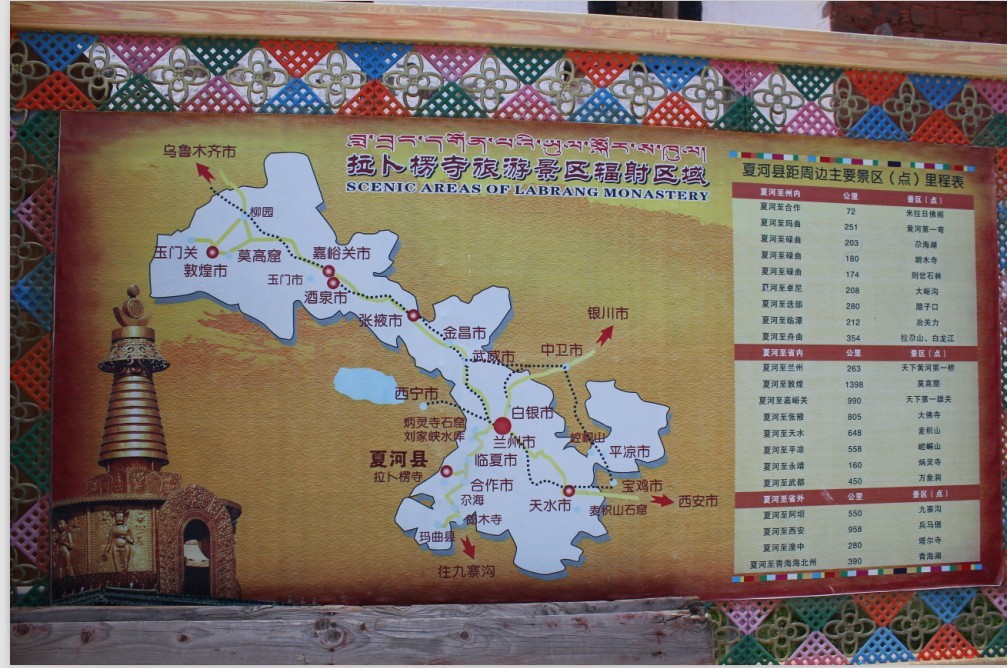 བླ་བྲང་དགོན་པའི་ཡུལ་སྐོར་ས་ཁུལ།
拉卜楞寺旅游景区辐射区域
SCENIC AREAS OF LABRANG MONASTERY
乌鲁木齐市
柳园
玉门关
莫高窟
敦煌市
嘉峪关市
玉门市
酒泉市
张掖市
金昌市
银川市
武威市
中卫市
西宁市
白银市
炳灵寺石窟
刘家峡水库
兰州市
崆峒山
平凉市
夏河县
拉卜楞寺
临夏市
合作市
尕海
天水市
宝鸡市
麦积山石窟
西安市
郎木寺
玛曲县
往九寨沟
夏河县距周边主要景区（点）里程表
夏河至州内 公里 景区（点）
夏河至合作 72 米拉日佛阁
夏河至玛曲 251 黄河第一弯
夏河至碌曲 203 尕海湖
夏河至碌曲 180 郎木寺
夏河至碌曲 174 则岔石林
夏河至卓尼 208 大峪沟
夏河至迭部 280 腊子口
夏河至临潭 212 冶关力
夏河至舟曲 354 拉尕山、白龙江
夏河至省内 公里 景区（点）
夏河至兰州 263 天下黄河第一桥
夏河至敦煌 1398 莫高窟
夏河至嘉峪关 990 天下第一雄关
夏河至张掖 805 大佛寺
夏河至天水 648 麦积山
夏河至平凉 558 崆峒山
夏河至永靖 160 炳灵寺
夏河至武都 450 万象洞
夏河至省外 公里 景区（点）
夏河至阿坝 550 九寨沟
夏河至西安 958 兵马俑
夏河至湟中 280 塔尔寺
夏河至青海海北州 390 青海湖